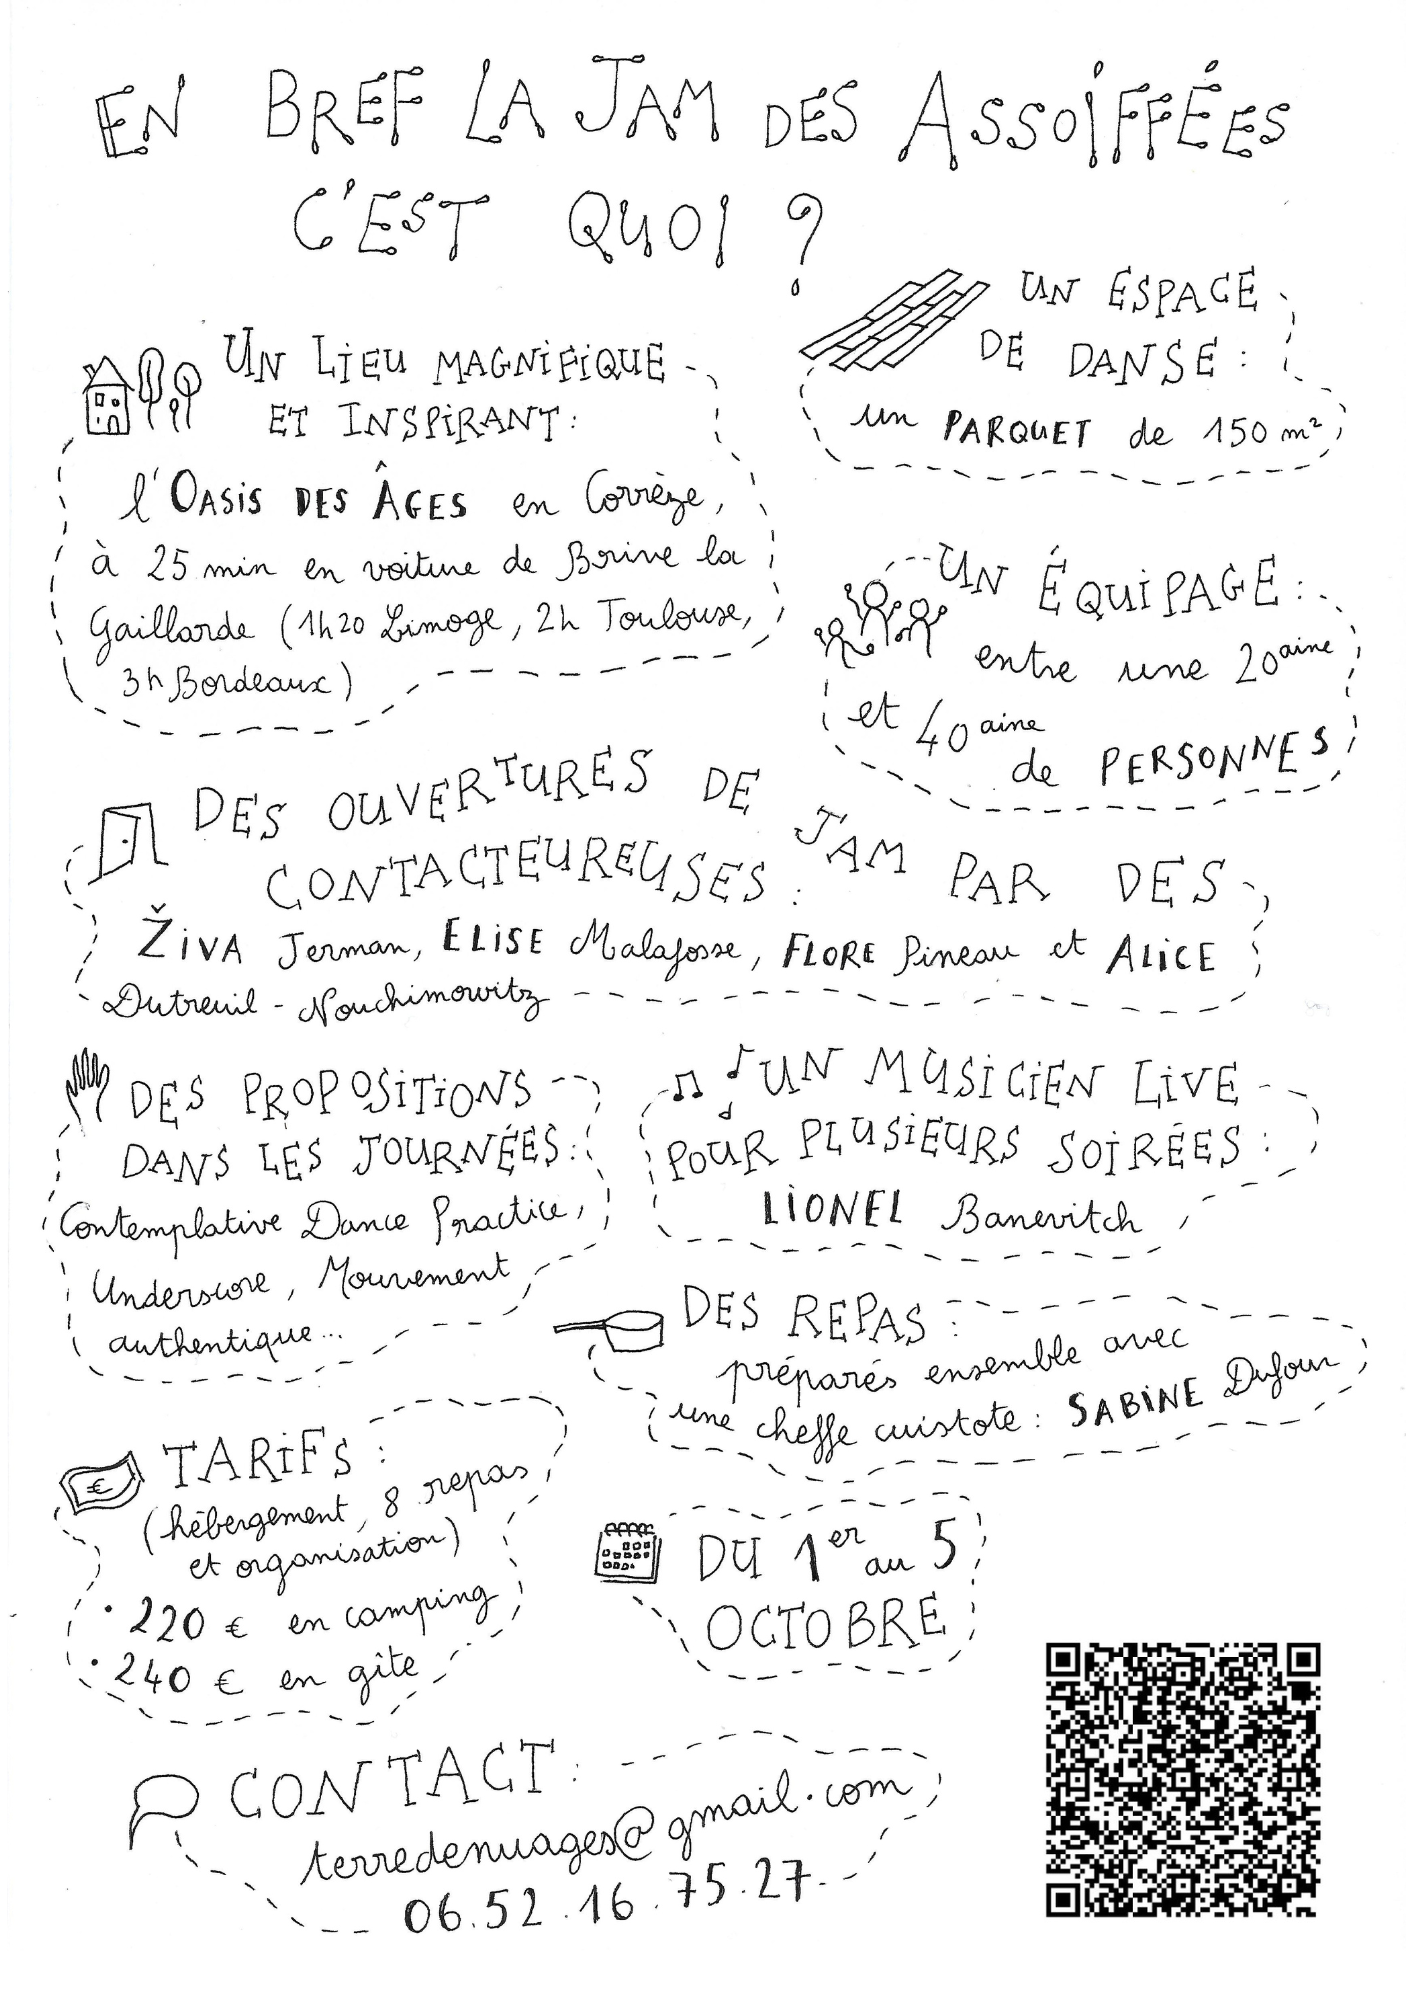 EN BREF LA JAM DES ASSOIFFÉES
C'EST QUOI ?
UN LIEU MAGNIFIQUE
ET INSPIRANT :
l'OASIS DES ÂGES en Corrèze,
à 25 min en voiture de Brive la
Gaillarde (1h20 Limoge, 2h Toulouse,
3h Bordeaux)
UN ESPACE
DE DANSE :
un PARQUET de 150 m²
UN ÉQUIPAGE :
entre une 20aine
et 40aine
de PERSONNES
DES OUVERTURES DE JAM PAR DES
CONTACTEUREUSES :
ŽIVA Jerman, ELISE Malafosse, FLORE Pineau et ALICE
Dutreuil - Nouchimowitz
DES PROPOSITIONS
DANS LES JOURNÉES :
Contemplative Dance Practice,
Underscore, Mouvement
authentique...
UN MUSICIEN LIVE
POUR PLUSIEURS SOIRÉES :
LIONEL Banevitch
DES REPAS :
préparés ensemble avec
une cheffe cuistote : SABINE Dufour
TARIFS :
(hébergement, 8 repas
et organisation)
• 220 € en camping
• 240 € en gîte
DU 1er au 5
OCTOBRE
CONTACT :
terredenuages@gmail.com
06.52.16.75.27